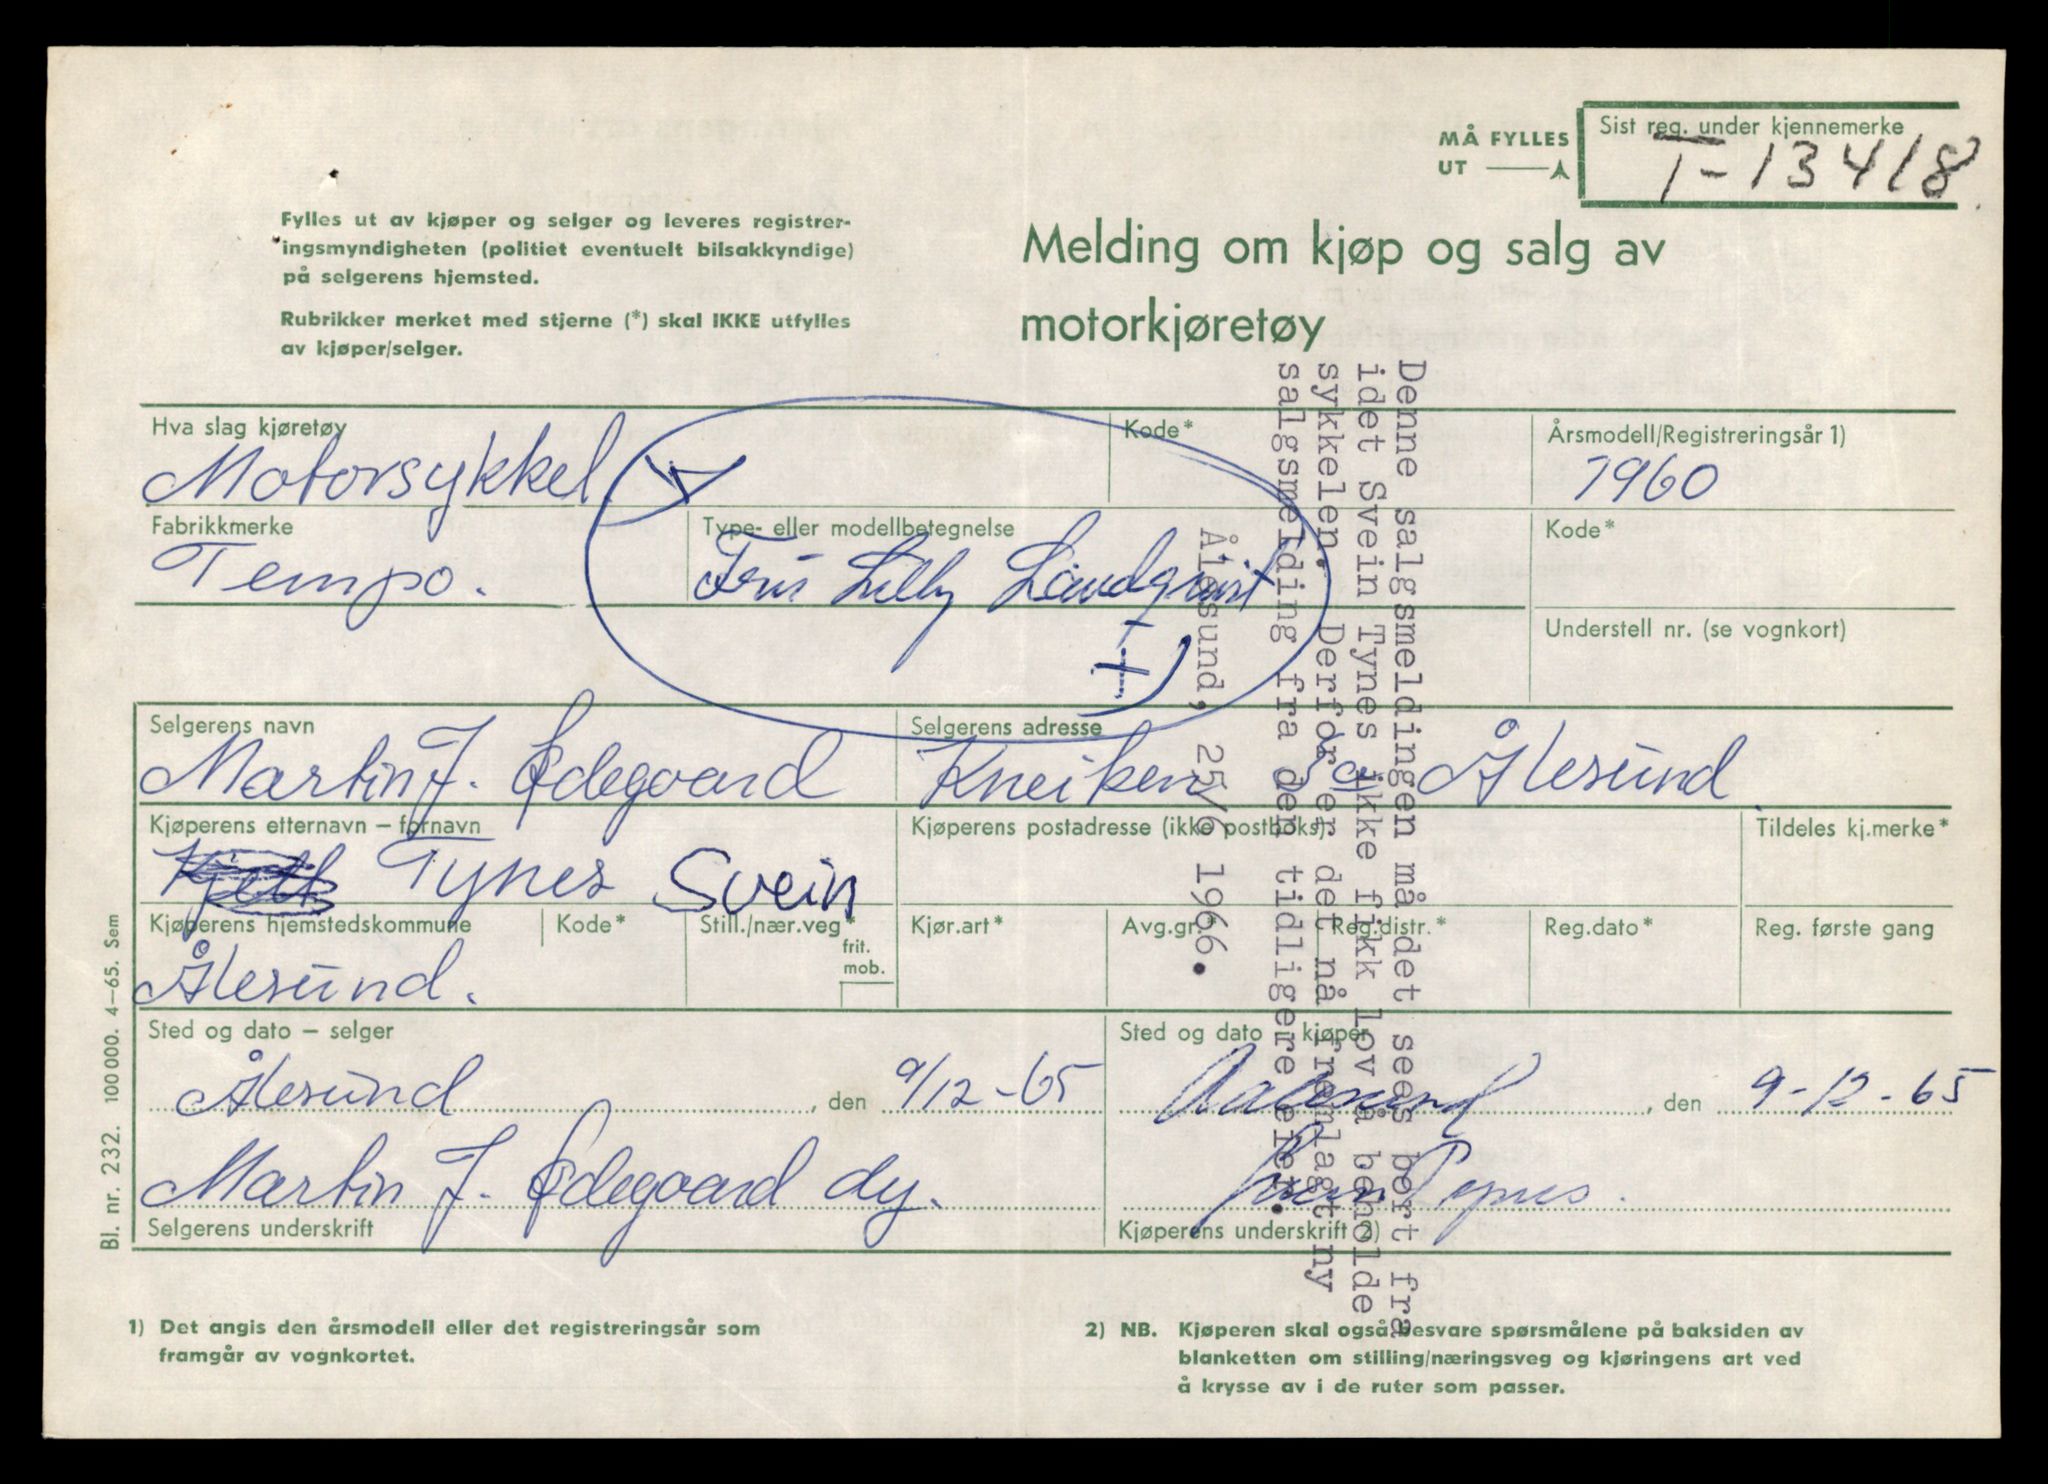 MÅ FYLLES
UT
Sist reg. under kjennemerke
T-13418
Fylles ut av kjøper og selger og leveres registrer-
ingsmyndigheten (politiet eventuelt bilsakkyndige)
på selgerens hjemsted.
Rubrikker merket med stjerne (*) skal IKKE utfylles
av kjøper/selger.
Melding om kjøp og salg av
motorkjøretøy
Hva slag kjøretøy
Motorsykkel
Kode*
Årsmodell/Registreringsår 1)
1960
Fabrikkmerke
Tempo.
Type- eller modellbetegnelse
Lilly
Kode*
Understell nr. (se vognkort)
Selgerens navn
Martin J. Ødegaard
Selgerens adresse
Kneiken Ålesund.
Kjøperens etternavn – fornavn
Tynes Svein
Kjøperens postadresse (ikke postboks)
Tildeles kj.merke*
Kjøperens hjemstedskommune
Ålesund.
Kode*
Still./nær.veg*
frit.
mob.
Kjør.art*
Avg.gr.*
Reg.distr.*
Reg.dato*
Reg. første gang
Sted og dato – selger
Ålesund, den 9/12-65
Martin J. Ødegaard
Selgerens underskrift
Sted og dato - kjøper
Aalesund, den 9-12-65
Svein Tynes.
Kjøperens underskrift 2)
Denne salgsmeldingen må det sees bort fra
idet Svein Tynes ikke fikk lov å beholde
sykkelen. Derfor er det nå fremlagt ny
salgsmelding fra den tidligere eier.
Ålesund, 25/6 1966.
Bl. nr. 232. 100 000. 4–65. Sem
1) Det angis den årsmodell eller det registreringsår som
framgår av vognkortet.
2) NB. Kjøperen skal også besvare spørsmålene på baksiden av
blanketten om stilling/næringsveg og kjøringens art ved
å krysse av i de ruter som passer.